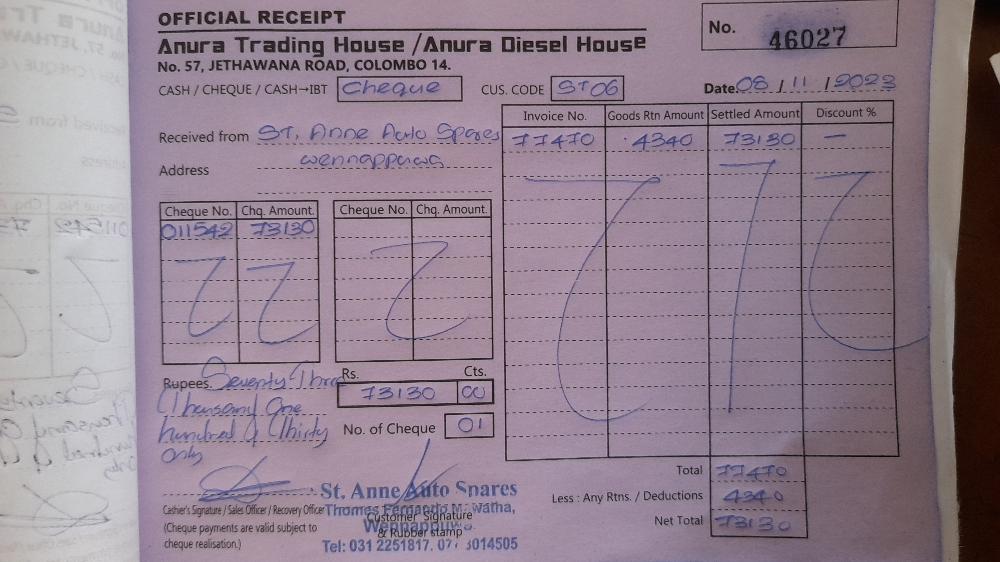 OFFICIAL RECEIPT
No. 46027
Anura Trading House /Anura Diesel House
No. 57, JETHAWANA ROAD, COLOMBO 14.
CASH / CHEQUE / CASH→IBT Cheque CUS. CODE ST06 Date: 08 / 11 / 2023
Invoice No. Goods Rtn Amount Settled Amount Discount %
77470 4340 73130 —
Received from ST. Anne Auto Spares
Address wennappuwa
Cheque No. Chq. Amount. Cheque No. Chq. Amount.
011542 73130
Rupees. Seventy Three
Thousand One
hundred & Thirty
only
Rs. Cts.
73130 00
No. of Cheque 01
Total 77470
Less : Any Rtns. / Deductions 4340
Net Total 73130
St. Anne Auto Spares
Thomas Fernando Mawatha,
Wennappuwa.
Tel: 031 2251817, 3014505
Cashier's Signature / Sales Officer / Recovery Officer
(Cheque payments are valid subject to
cheque realisation.)
Customer Signature
& Rubber stamp